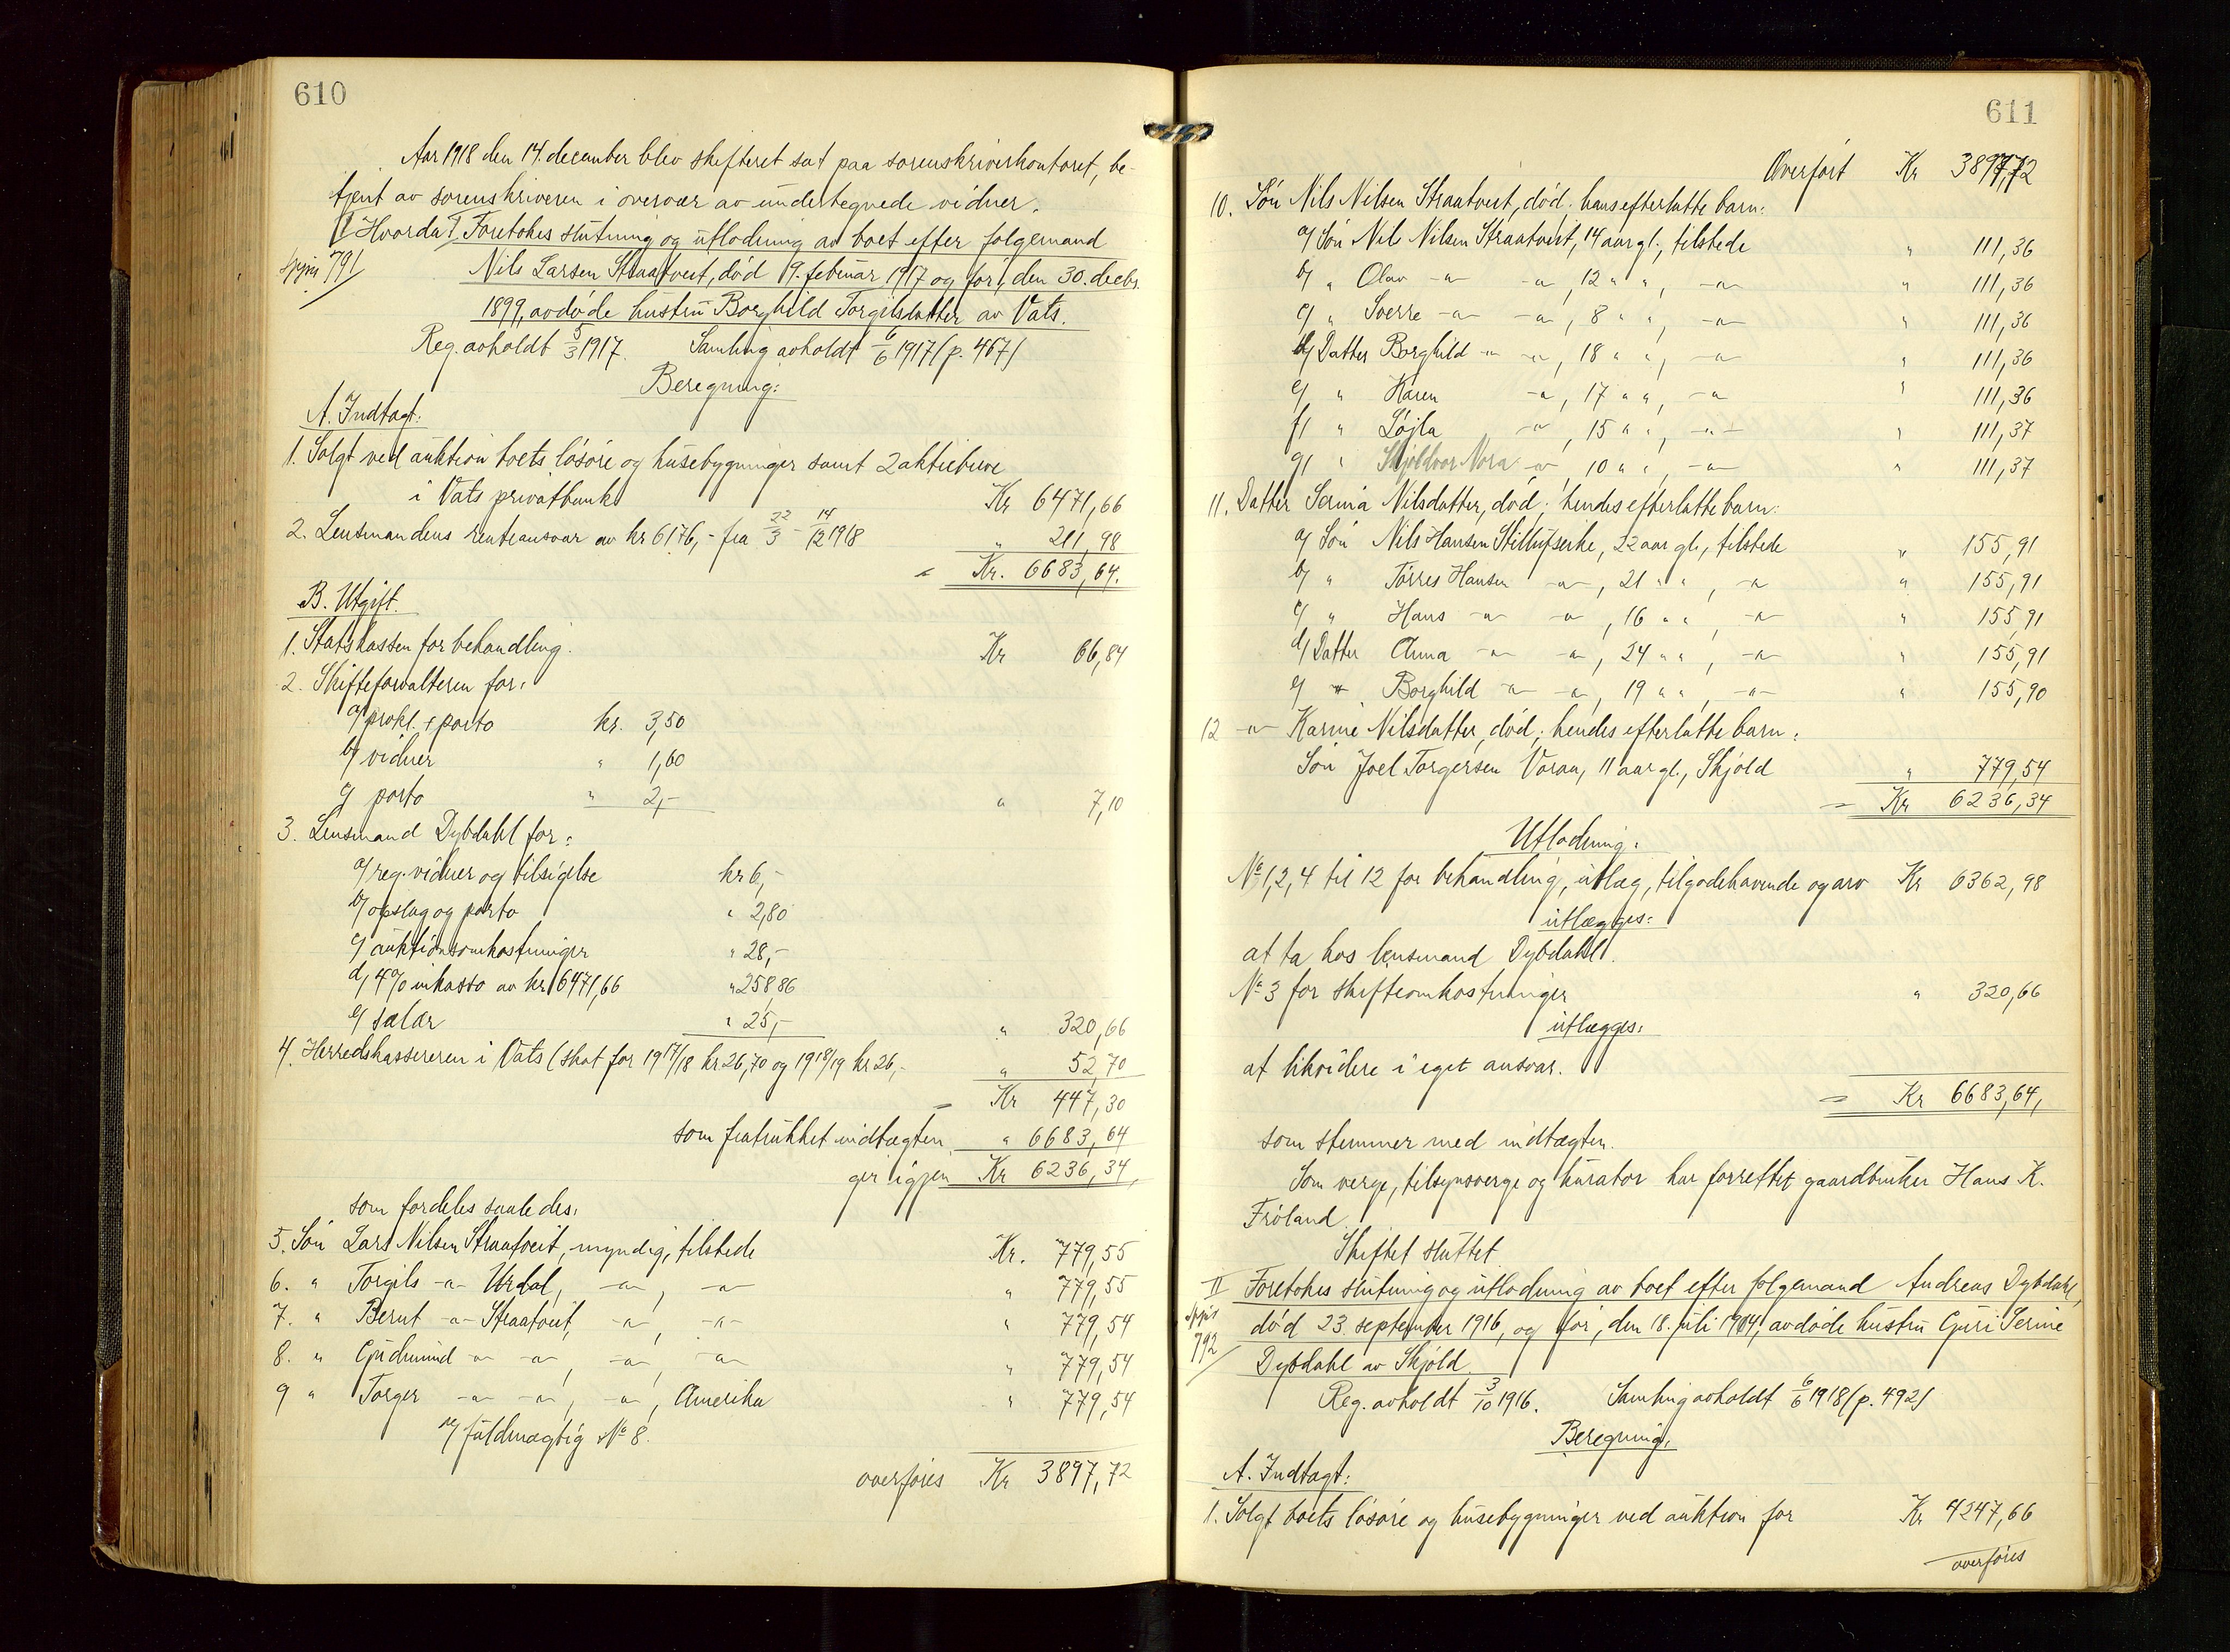 610
Aar 1918 den 14. december blev skifteret sat paa sorenskriverkontoret, be-
tjent av sorenskriveren i overvær av undertegnede vidner.
Hvorda I Foretokes slutning og utlodning av boet efter følgemand
791 Nils Larsen Straatveit, død 19. februar 1917 og før, den 30. decbr.
1899, avdøde hustru Borghild Torgilsdatter av Vats.
Reg. avholdt 5/3 1917. Samling avholdt 6/6 1917 (p. 467)
Beregning:
A. Indtægt:
1. Solgt ved auktion boets løsøre og husebygninger samt 2 aktiebreve
i Vats privatbank Kr 6471,66
2. Lensmandens renteansvar av kr 6176,- fra 22/3 - 14/12 1918 " 211,98
= Kr. 6683,64.
B. Utgift.
1. Statskassen for behandling. Kr 66,84
2. Skifteforvalteren for:
a/ prokl. + porto kr. 3,50
b/ vidner " 1,60
c/ porto " 2,- " 7,10
3. Lensmand Dybdahl for:
a/ reg. vidner og tilsigelse kr 6,-
b/ opslag og porto " 2,80
c/ auktionsomkostninger " 28,-
d/ 4% inkasso av kr 6471,66 " 258,86
e/ salær " 25,- " 320,66
4. Herredskassereren i Vats (skat for 1917/18 kr 26,70 og 1918/19 kr 26,- " 52,70
= Kr 447,30
som fratrukket indtægten " 6683,64
gir igjen Kr 6236,34,
som fordeles saaledes:
5. Søn Lars Nilsen Straatveit, myndig, tilstede Kr. 779,55
6. " Torgils -"- Urdal, -"-, -"- " 779,55
7. " Berut -"- Straatveit, -"-, -"- " 779,54
8. " Gudmund -"- -"-, -"-, -"- " 779,54
9 " Torger -"- -"-, -"-, Amerika " 779,54
v/ fuldmægtig No 8.
overføres Kr 3897,72
611
Overført Kr 3897,72
10. Søn Nils Nilsen Straatveit, død; hans efterlatte barn:
a/ Søn Nils Nilsen Straatveit, 14 aar gl., tilstede " 111,36
b/ " Olav -"- -"-, 12 " ", -"- " 111,36
c/ " Sverre -"- -"-, 8 " ", -"- " 111,36
d/ Datter Borghild -"- -"-, 18 " ", -"- " 111,36
e/ " Karen -"-, 17 " ", -"- " 111,36
f/ " Løjla -"-, 15 " ", -"- " 111,37
g/ " Skjoldvor Nora -"-, 10 " ", -"- " 111,37
11. Datter Serina Nilsdatter, død; hendes efterlatte barn:
a/ Søn Nils Hansen, 22 aar gl., tilstede " 155,91
b/ " Tørres Hansen -"-, 21 " ", -"- " 155,91
c/ " Hans -"- -"-, 16 " ", -"- " 155,91
d/ Datter Anna -"- -"-, 24 " ", -"- " 155,91
e/ " Borghild -"- -"-, 19 " ", -"- " 155,90
12 -"- Karine Nilsdatter, død; hendes efterlatte barn:
Søn Joel Torgersen Voraa, 11 aar gl., Skjold " 779,54
= Kr 6236,34
Utlodning:
No 1, 2, 4 til 12 for behandling, utlæg, tilgodehavende og arv Kr 6362,98
utlægges:
at ta hos lensmand Dybdahl.
No 3 for skifteomkostninger " 320,66
utlægges:
at likvidere i eget ansvar.
= Kr 6683,64,
som stemmer med indtægten.
Som verge, tilsynsverge og kurator har forrettet gaardbruker Hans K.
Frøland.
Skiftet sluttet.
II Foretokes slutning og utlodning av boet efter følgemand Andreas Dybdahl,
792 død 23. september 1916, og før, den 18. juli 1904, avdøde hustru Guri Serine
Dybdahl av Skjold
Reg. avholdt 3/10 1916. Samling avholdt 6/6 1918 (p. 492)
Beregning.
A. Indtægt:
1. Solgt boets løsøre og husebygninger ved auktion for Kr 4247,66
overføres